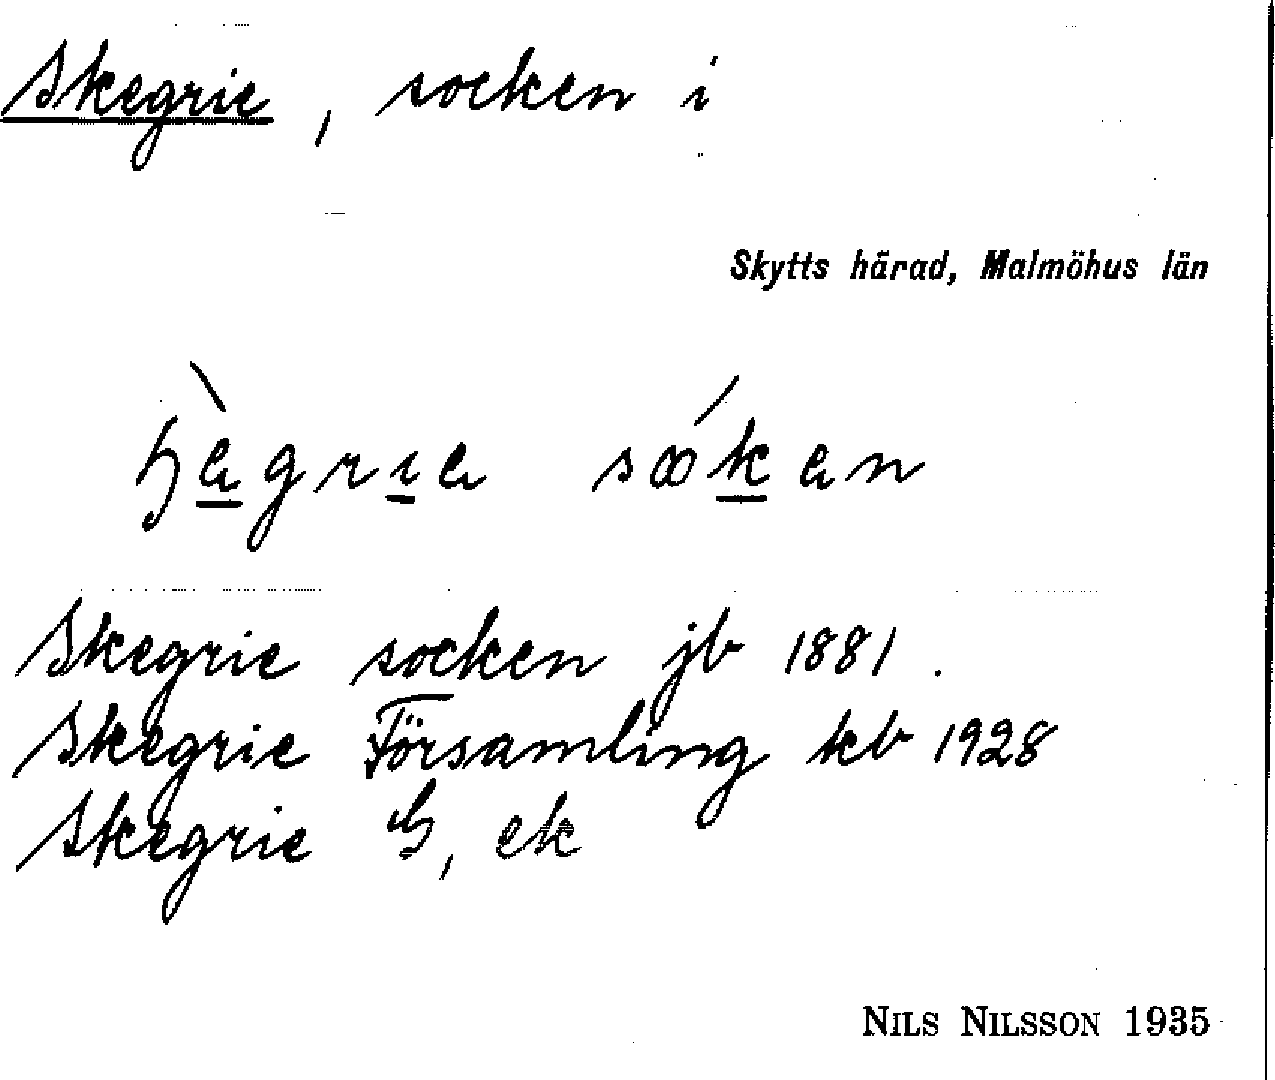 Skegrie, socken i
Skytts härad, Malmöhus län
Skegrie socken jb 1881.
Skegrie Församling kb 1928
Skegrie S, ek
NILS NILSSON 1935